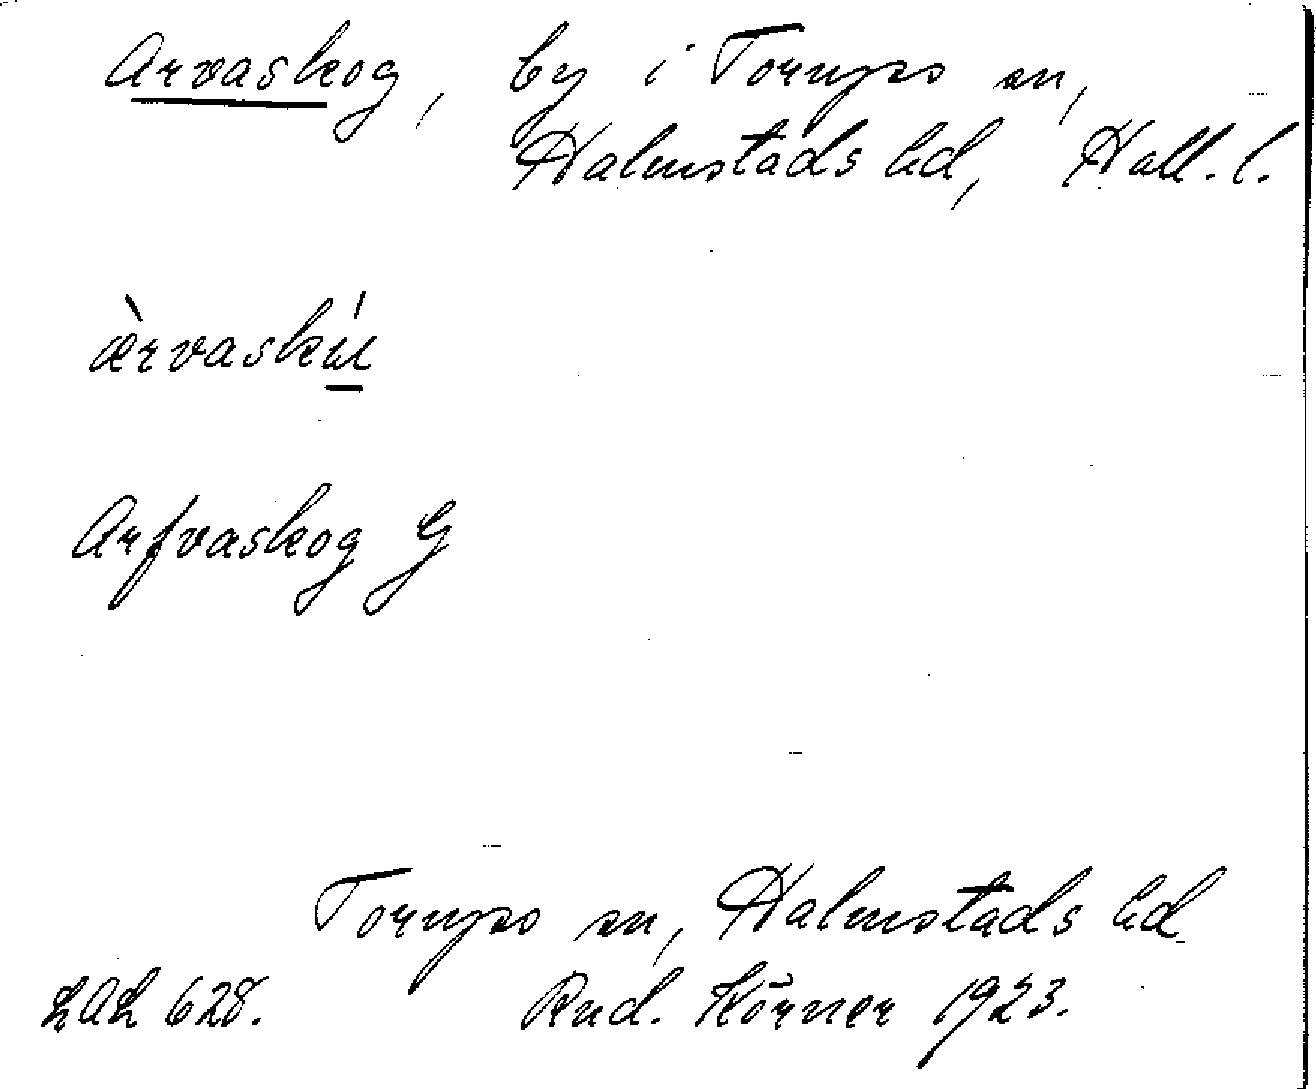 Arvaskog, by i Torups sn,
Halmstads hd, Hall. l.
Arfvaskog G
Torups sn, Halmstads hd
LAL 628. Rud. Körner 1923.